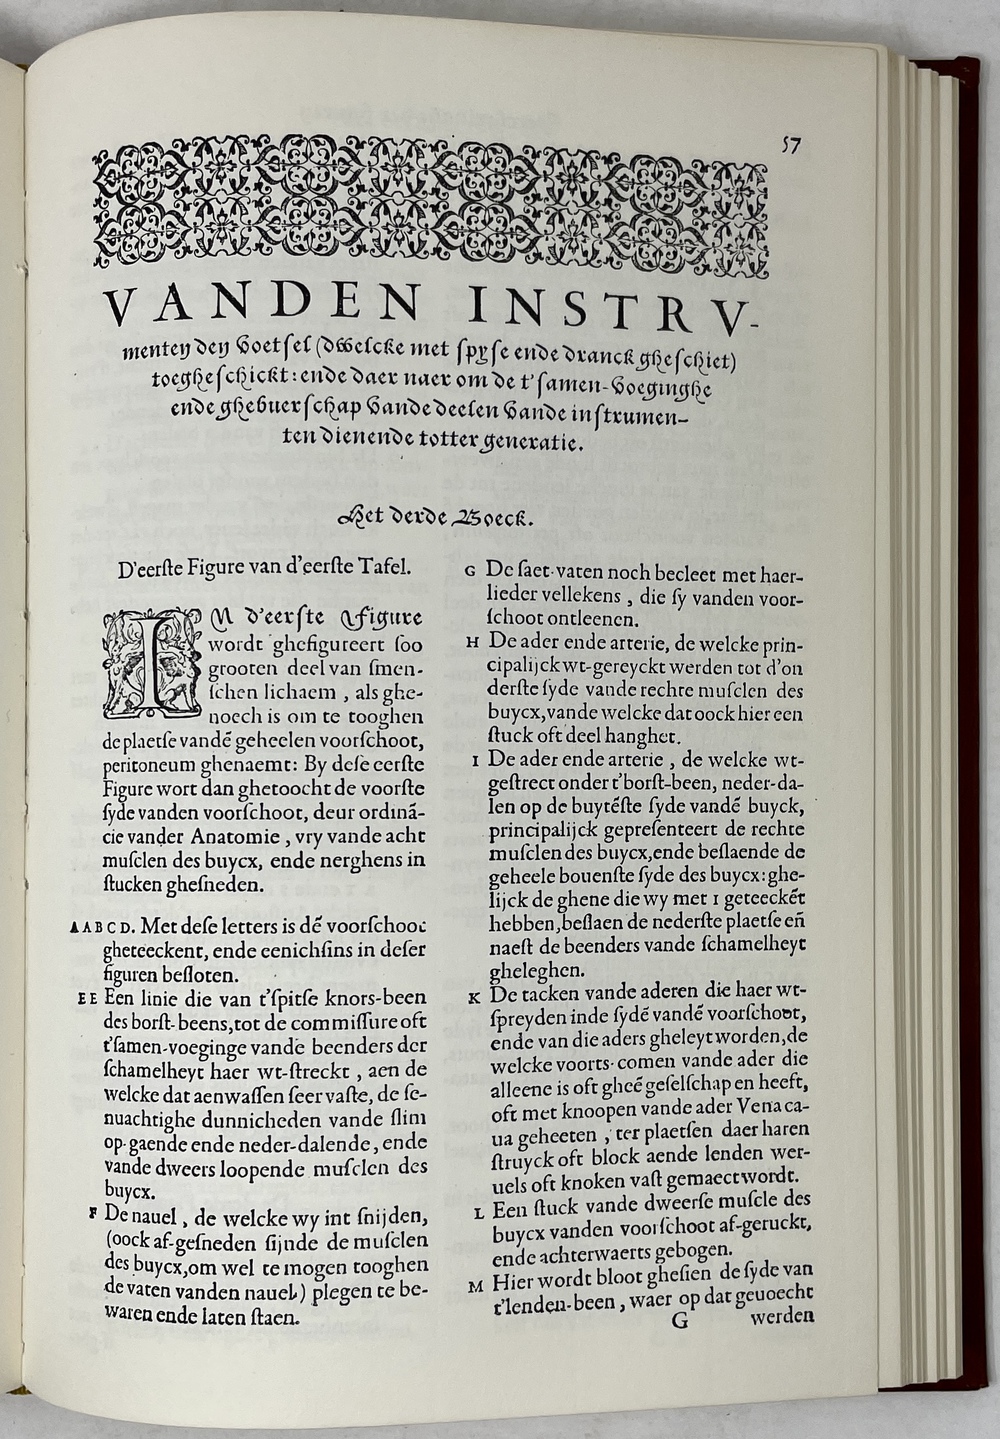 57
VANDEN INSTRV-
menten den Voetsel (dWelcke met spyse ende dranck gheschiet)
toegheschickt: ende daer naer om de t'samen-Voeginghe
ende ghebuerschap Vande deelen Vande instrumen-
ten dienende totter generatie.
Het derde Boeck.
D'eerste Figure van d'eerste Tafel.
IN d'eerste Figure
wordt ghefigureert soo
grooten deel van smen-
schen lichaem, als ghe-
noech is om te tooghen
de plaetse vandẽ geheelen voorschoot,
peritoneum ghenaemt: By dese eerste
Figure wort dan ghetoocht de voorste
syde vanden voorschoot, deur ordinã-
cie vander Anatomie, vry vande acht
musclen des buycx, ende nerghens in
stucken ghesneden.
AABCD. Met dese letters is dẽ voorschoot
gheteeckent, ende eenichsins in deser
figuren besloten.
EE Een linie die van t'spitse knors-been
des borst-beens, tot de commissure oft
t'samen-voeginge vande beenders der
schamelheyt haer wt-streckt, aen de
welcke dat aenwassen seer vaste, de se-
nuachtighe dunnicheden vande slim
op-gaende ende neder-dalende, ende
vande dweers loopende musclen des
buycx.
F De nauel, de welcke wy int snijden,
(oock af-gesneden sijnde de musclen
des buycx, om wel te mogen tooghen
de vaten vanden nauel) plegen te be-
waren ende laten staen.
G De saet-vaten noch becleet met haer-
lieder vellekens, die sy vanden voor-
schoot ontleenen.
H De ader ende arterie, de welcke prin-
cipalijck wt-gereyckt werden tot d'on
derste syde vande rechte musclen des
buycx, vande welcke dat oock hier een
stuck oft deel hanghet.
I De ader ende arterie, de welcke wt-
gestrect onder t'borst-been, neder-da-
len op de buytẽste syde vandẽ buyck,
principalijck gepresenteert de rechte
musclen des buycx, ende beslaende de
geheele bouenste syde des buycx: ghe-
lijck de ghene die wy met I geteeckẽt
hebben, beslaen de nederste plaetse eñ
naest de beenders vande schamelheyt
gheleghen.
K De tacken vande aderen die haer wt-
spreyden inde sydẽ vandẽ voorschoot,
ende van die aders gheleyt worden, de
welcke voorts-comen vande ader die
alleene is oft gheẽ geselschap en heeft,
oft met knoopen vande ader Vena ca-
ua geheeten, ter plaetsen daer haren
struyck oft block aende lenden wer-
uels oft knoken vast gemaect wordt.
L Een stuck vande dweerse muscle des
buycx vanden voorschoot af-geruckt,
ende achterwaerts gebogen.
M Hier wordt bloot ghesien de syde van
t'lenden-been, waer op dat geuoecht
G werden